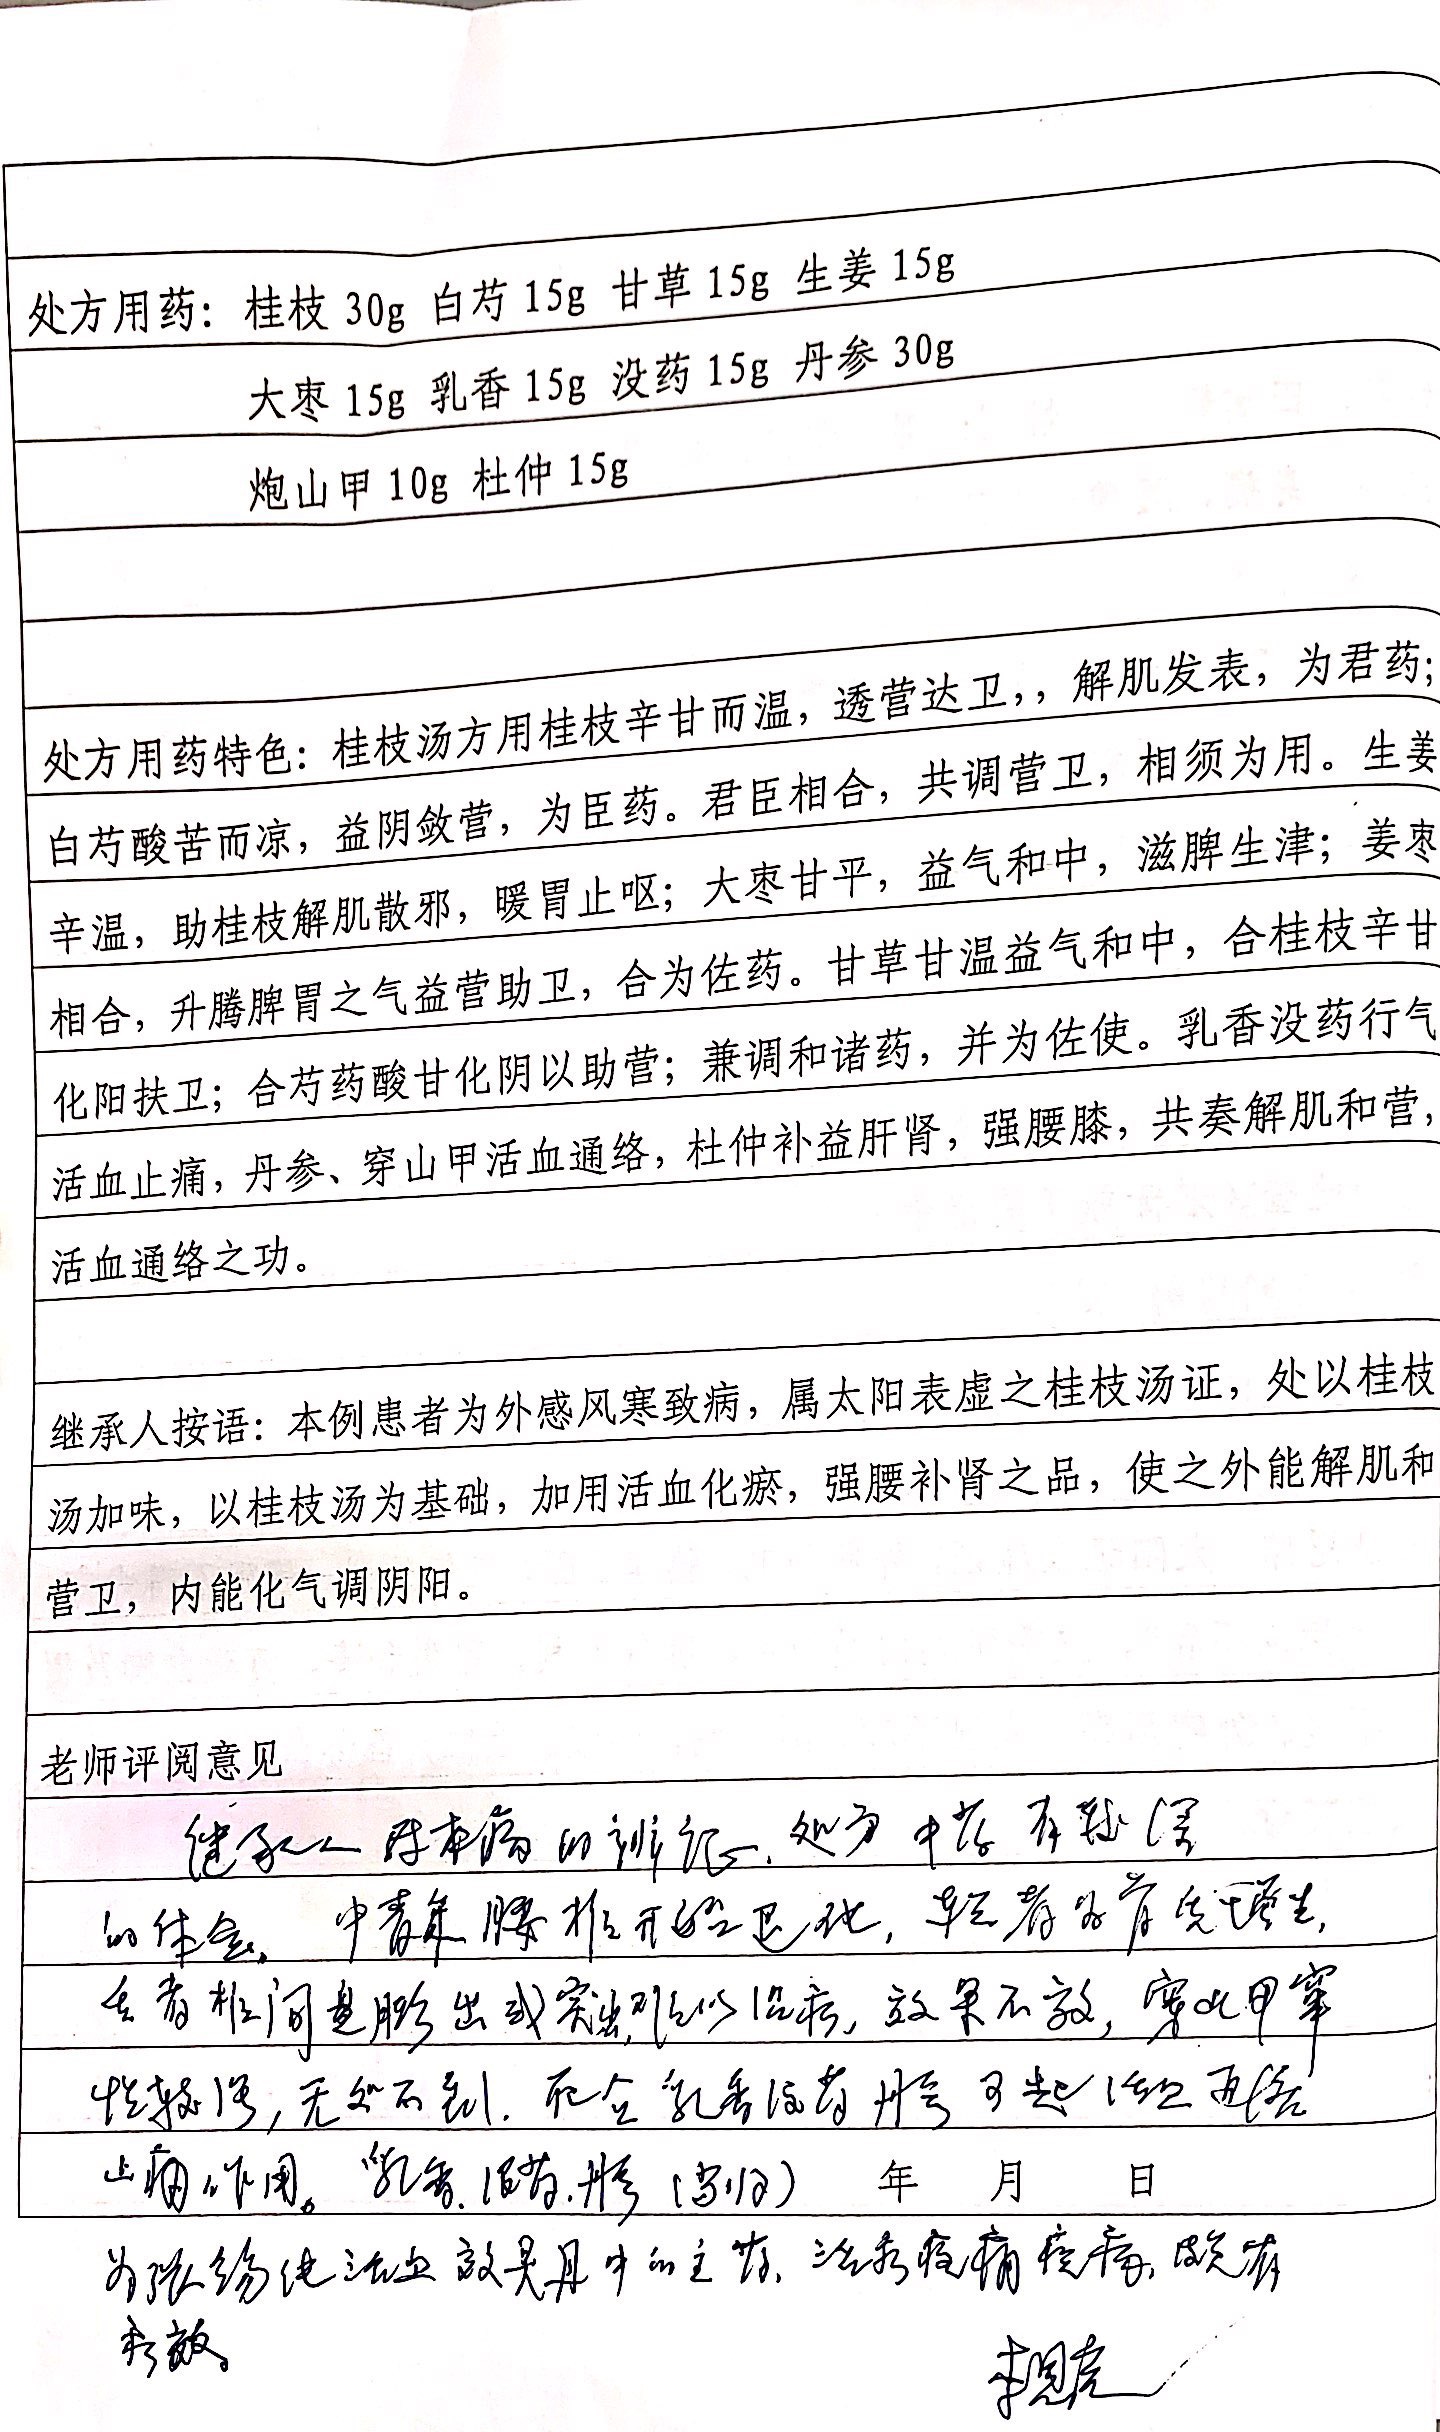 处方用药：桂枝 30g 白芍 15g 甘草 15g 生姜 15g
大枣 15g 乳香 15g 没药 15g 丹参 30g
炮山甲 10g 杜仲 15g
处方用药特色：桂枝汤方用桂枝辛甘而温，透营达卫，，解肌发表，为君药；
白芍酸苦而凉，益阴敛营，为臣药。君臣相合，共调营卫，相须为用。生姜
辛温，助桂枝解肌散邪，暖胃止呕；大枣甘平，益气和中，滋脾生津；姜枣
相合，升腾脾胃之气益营助卫，合为佐药。甘草甘温益气和中，合桂枝辛甘
化阳扶卫；合芍药酸甘化阴以助营；兼调和诸药，并为佐使。乳香没药行气
活血止痛，丹参、穿山甲活血通络，杜仲补益肝肾，强腰膝，共奏解肌和营，
活血通络之功。
继承人按语：本例患者为外感风寒致病，属太阳表虚之桂枝汤证，处以桂枝
汤加味，以桂枝汤为基础，加用活血化瘀，强腰补肾之品，使之外能解肌和
营卫，内能化气调阴阳。
老师评阅意见
继承人对本病的辨证、处方用药有较深
的体会。中青年腰椎开始退化，轻者为骨先增生，
重者椎间盘膨出或突出，难以治疗，效果不效，穿山甲窜
性较强，无处不到。配合乳香没药丹参可起活血通络
止痛作用。乳香、没药、丹参（当归） 年 月 日
为张锡纯活血效灵丹中的主药，治疗疼痛疾病，颇有
疗效。
李恩虎